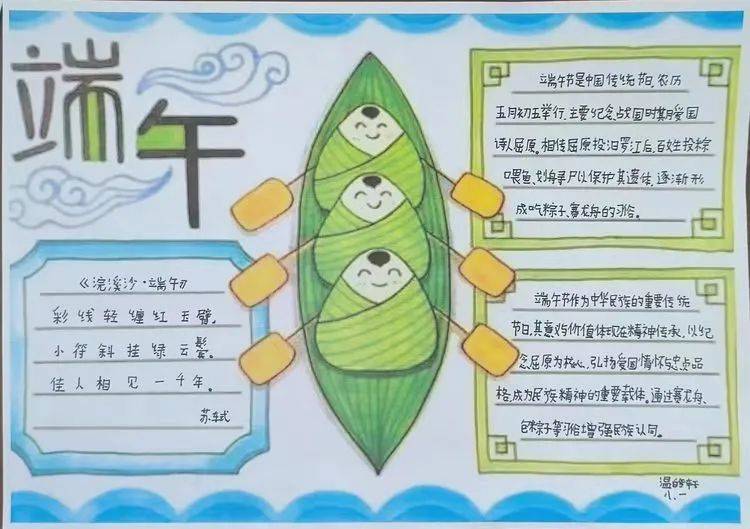 端午
《浣溪沙·端午》
彩线轻缠红玉臂,
小符斜挂绿云鬟。
佳人相见一千年。
苏轼
端午节是中国传统节日,农历
五月初五举行,主要纪念战国时期爱国
诗人屈原。相传屈原投汨罗江后,百姓投粽
喂鱼、划舟寻尸以保护其遗体,逐渐形
成吃粽子、赛龙舟的习俗。
端午节作为中华民族的重要传统
节日,其意义与价值体现在精神传承,以纪
念屈原为核心,弘扬爱国情怀与忠贞品
格,成为民族精神的重要载体。通过赛龙舟、
包粽子等习俗增强民族认同。
八.一